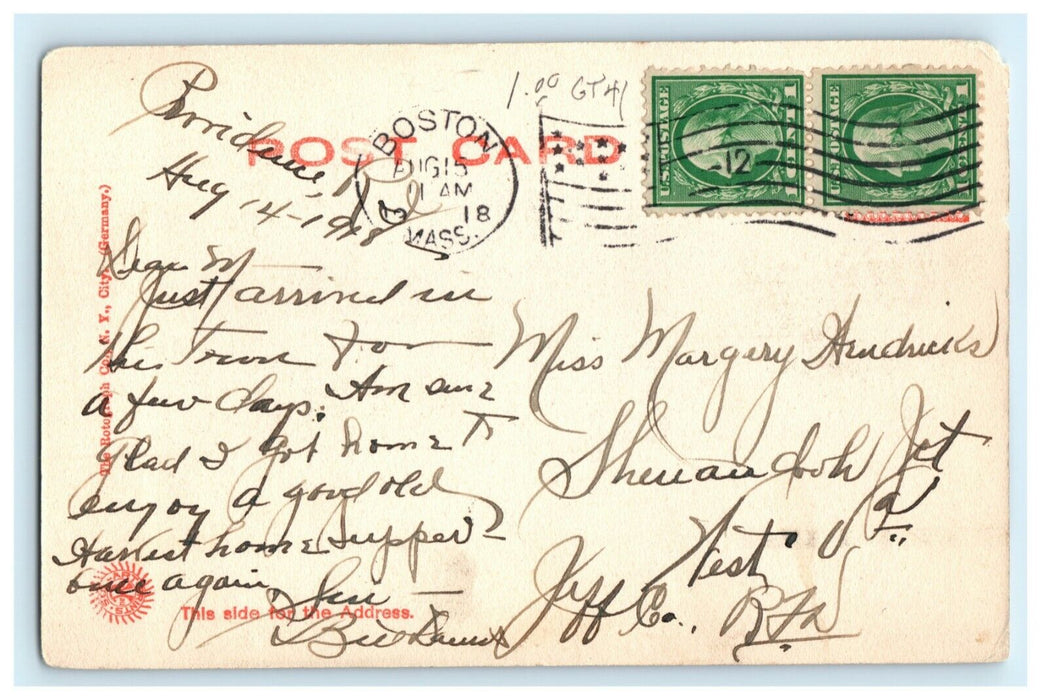 1.00 GT41
POST CARD
BOSTON
AUG 15
1 AM
18
MASS.
12
U.S. POSTAGE
1 CENT 1
U.S. POSTAGE
1 CENT 1
Providence, R I
Aug 14-1918
Dear M
Just arrived in
the Town for
a few days. Am
Glad I got home to
enjoy a good old
Harvest home supper
once again.
Miss Margery Hendricks
Shenandoah Jct
West Va.
Jeff Co.,
The Rotograph Co., N. Y., City. (Germany.)
This side for the Address.